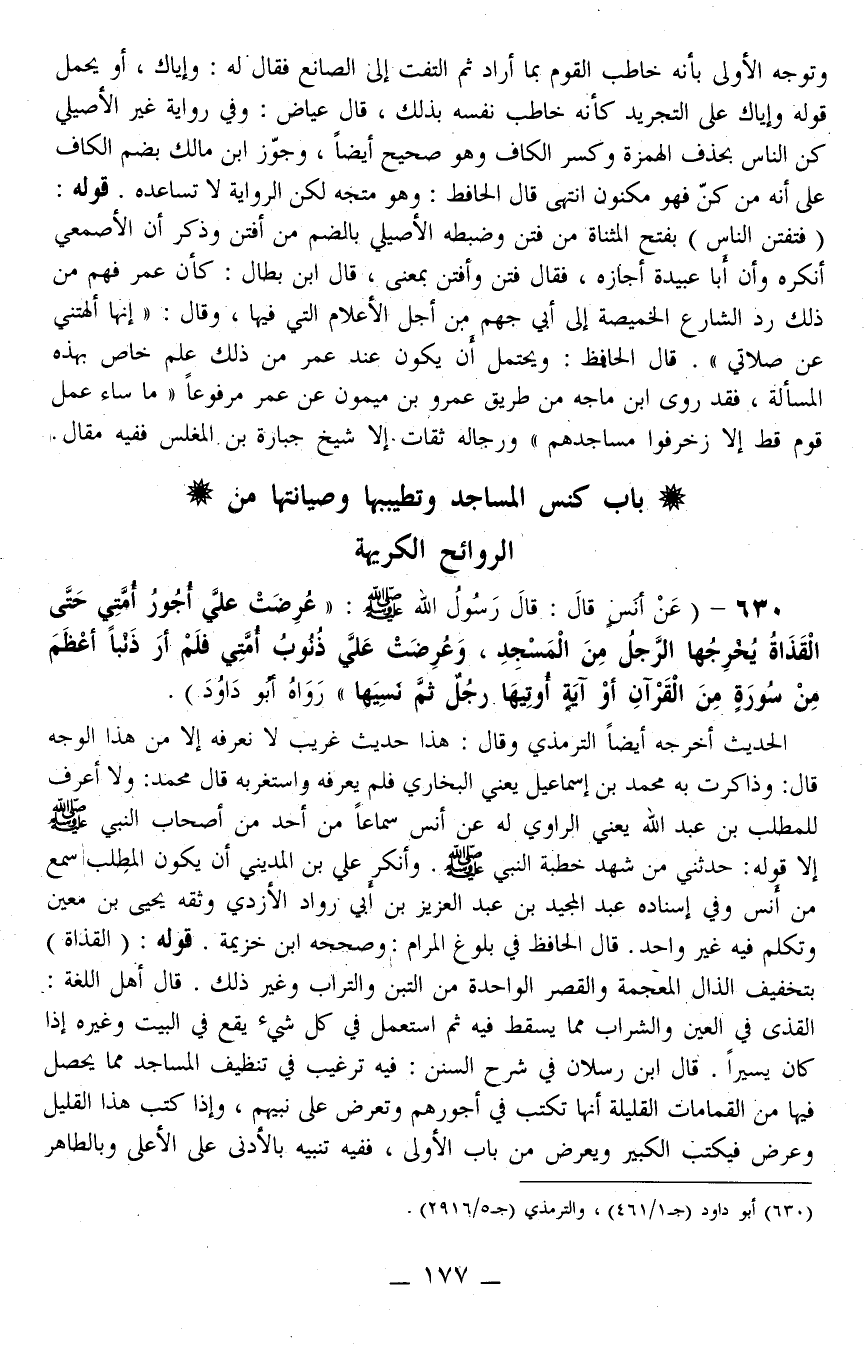 وتوجه الأولى بأنه خاطب القوم بما أراد ثم التفت إلى الصانع فقال له : وإياك ، أو يحمل
قوله وإياك على التجريد كأنه خاطب نفسه بذلك ، قال عياض : وفي رواية غير الأصيلي
كن الناس بحذف الهمزة وكسر الكاف وهو صحيح أيضاً ، وجوّز ابن مالك بضم الكاف
على أنه من كنّ فهو مكنون انتهى قال الحافظ : وهو متجه لكن الرواية لا تساعده . قوله :
( فتفتن الناس ) بفتح المثناة من فتن وضبطه الأصيلي بالضم من أفتن وذكر أن الأصمعي
أنكره وأن أبا عبيدة أجازه ، فقال فتن وأفتن بمعنى ، قال ابن بطال : كأن عمر فهم من
ذلك رد الشارع الخميصة إلى أبي جهم من أجل الأعلام التي فيها ، وقال : « إنها ألهتني
عن صلاتي » . قال الحافظ : ويحتمل أن يكون عند عمر من ذلك علم خاص بهذه
المسألة ، فقد روى ابن ماجه من طريق عمرو بن ميمون عن عمر مرفوعاً « ما ساء عمل
قوم قط إلا زخرفوا مساجدهم » ورجاله ثقات إلا شيخ جبارة بن المغلس ففيه مقال .
باب كنس المساجد وتطييبها وصيانتها من
الروائح الكريهة
٦٣٠ – ( عَنْ أنَسٍ قالَ : قالَ رَسُولُ الله ﷺ : « عُرِضَتْ عليَّ أُجُورُ أُمَّتِي حَتَّى
الْقَذَاةُ يُخْرِجُها الرَّجلُ مِنَ الْمَسْجدِ ، وَعُرِضَتْ عَليَّ ذُنُوبُ أُمَّتِي فَلَمْ أرَ ذَنْباً أعْظَمَ
مِنْ سُورَةٍ مِنَ الْقُرْآنِ أوْ آيَةٍ أُوتِيهَا رجُلٌ ثمَّ نَسِيَها » رَوَاهُ أبُو دَاوُدَ ) .
الحديث أخرجه أيضاً الترمذي وقال : هذا حديث غريب لا نعرفه إلا من هذا الوجه
قال: وذاكرت به محمد بن إسماعيل يعني البخاري فلم يعرفه واستغربه قال محمد: ولا أعرف
للمطلب بن عبد الله يعني الراوي له عن أنس سماعاً من أحد من أصحاب النبي ﷺ
إلا قوله: حدثني من شهد خطبة النبي ﷺ . وأنكر علي بن المديني أن يكون المطلب سمع
من أنس وفي إسناده عبد المجيد بن عبد العزيز بن أبي رواد الأزدي وثقه يحيى بن معين
وتكلم فيه غير واحد. قال الحافظ في بلوغ المرام : وصححه ابن خزيمة . قوله : ( القذاة )
بتخفيف الذال المعجمة والقصر الواحدة من التبن والتراب وغير ذلك . قال أهل اللغة :
القذى في العين والشراب مما يسقط فيه ثم استعمل في كل شيء يقع في البيت وغيره إذا
كان يسيراً . قال ابن رسلان في شرح السنن : فيه ترغيب في تنظيف المساجد مما يحصل
فيها من القمامات القليلة أنها تكتب في أجورهم وتعرض على نبيهم ، وإذا كتب هذا القليل
وعرض فيكتب الكبير ويعرض من باب الأولى ، ففيه تنبيه بالأدنى على الأعلى وبالطاهر
(٦٣٠) أبو داود (جـ٤٦١/١) ، والترمذي (جـ٢٩١٦/٥) .
— ١٧٧ —